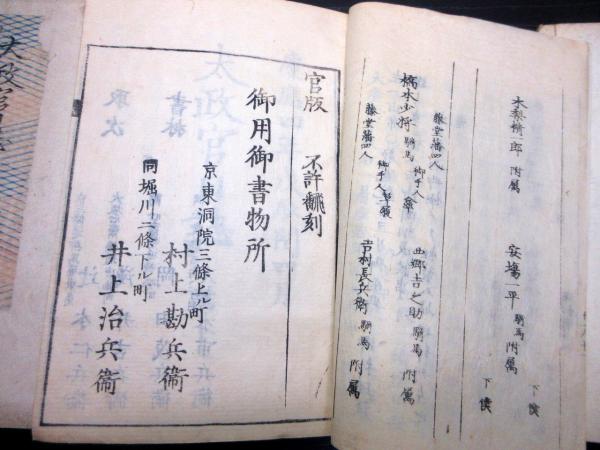 木梨精一郎 附属
安場一平 騎馬 附属
下僕
下僕
藤堂藩四人
橋本少将 騎馬
西郷吉之助 騎馬 附属
藤堂藩四人
吉村長兵衛 騎馬 附属
官版 不許翻刻
御用御書物所
京東洞院三條上ル町
村上勘兵衛
同堀川二條下ル町
井上治兵衛
太政官日